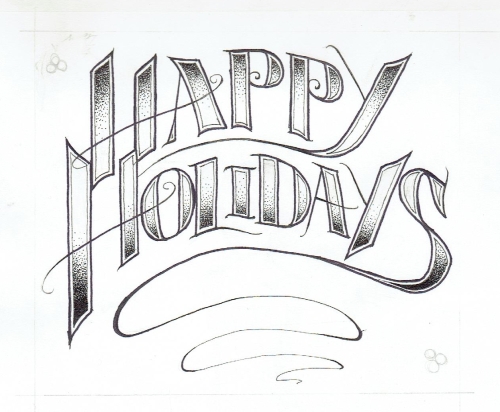 HAPPY
HOLIDAYS